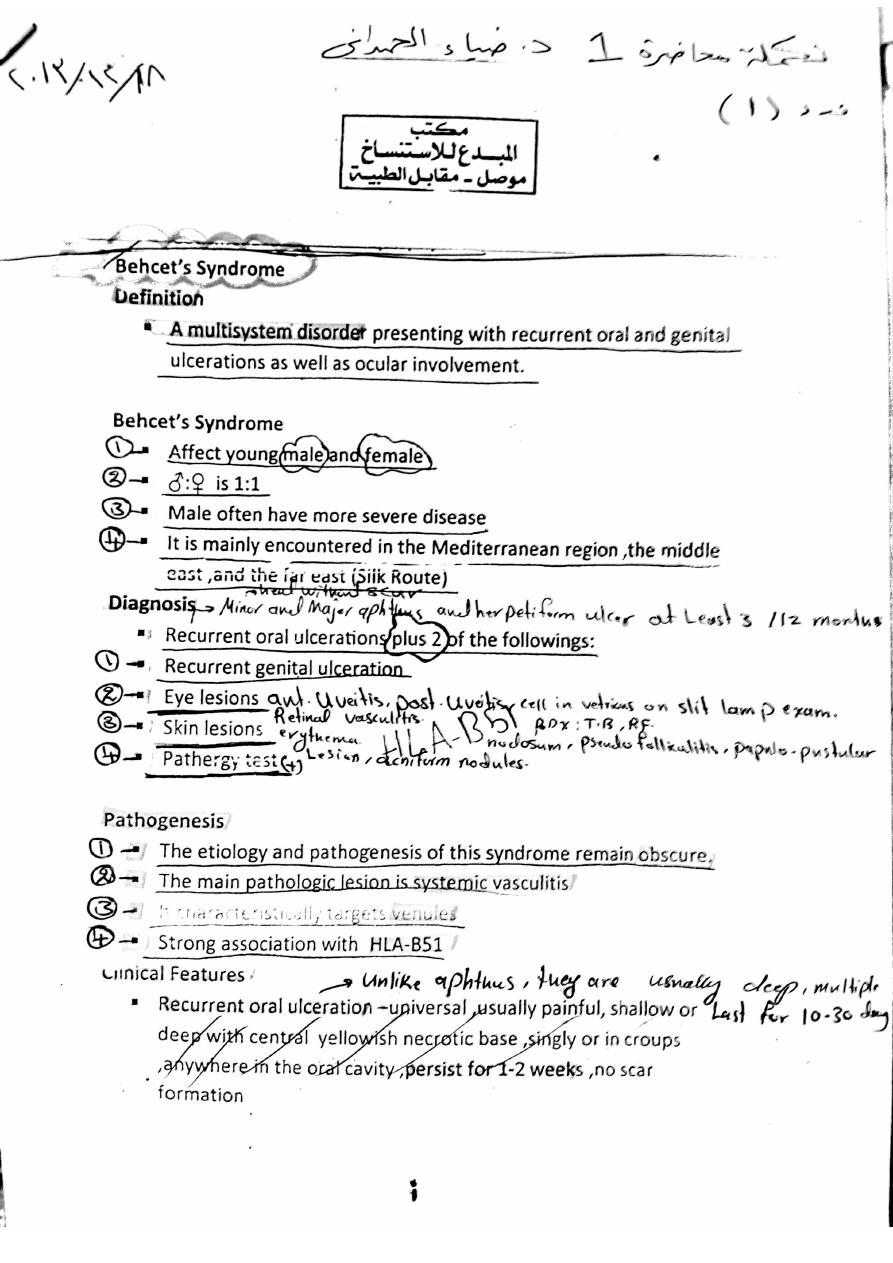 تكملة محاضرة 1 د. ضياء الحمداني
٢٠١٢/١٢/١٨
(١)
مكتب
المبدع للاستنساخ
موصل - مقابل الطبية
Behcet's Syndrome
Definition
▪ A multisystem disorder presenting with recurrent oral and genital
ulcerations as well as ocular involvement.
Behcet's Syndrome
① ▪ Affect young male and female
② ▪ ♂:♀ is 1:1
③ ▪ Male often have more severe disease
④ ▪ It is mainly encountered in the Mediterranean region ,the middle
east ,and the far east (Silk Route)
heal without scar
Diagnosis → Minor and Major aphthus and herpetiform ulcer at Least 3 /12 months
▪ Recurrent oral ulcerations plus 2 of the followings:
① ▪ Recurrent genital ulceration
② ▪ Eye lesions ant. Uveitis, post. Uveitis, cell in vetrious on slit lamp exam.
Retinal vasculitis.
③ ▪ Skin lesions erythema nodosum, pseudo folliculitis, papulo-pustular
HLA-B51
DDx: T.B, RF.
④ ▪ Pathergy test (+) Lesion, acniform nodules.
Pathogenesis
① ▪ The etiology and pathogenesis of this syndrome remain obscure.
② ▪ The main pathologic lesion is systemic vasculitis
③ ▪ It characteristically targets venules
④ ▪ Strong association with HLA-B51
Clinical Features
→ Unlike aphthus, they are usually deep, multiple
▪ Recurrent oral ulceration –universal ,usually painful, shallow or Last for 10-30 day
deep with central yellowish necrotic base ,singly or in croups
,anywhere in the oral cavity ,persist for 1-2 weeks ,no scar
formation